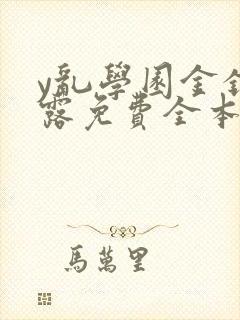 y亂學園金銀
露免費全本
馬萬里